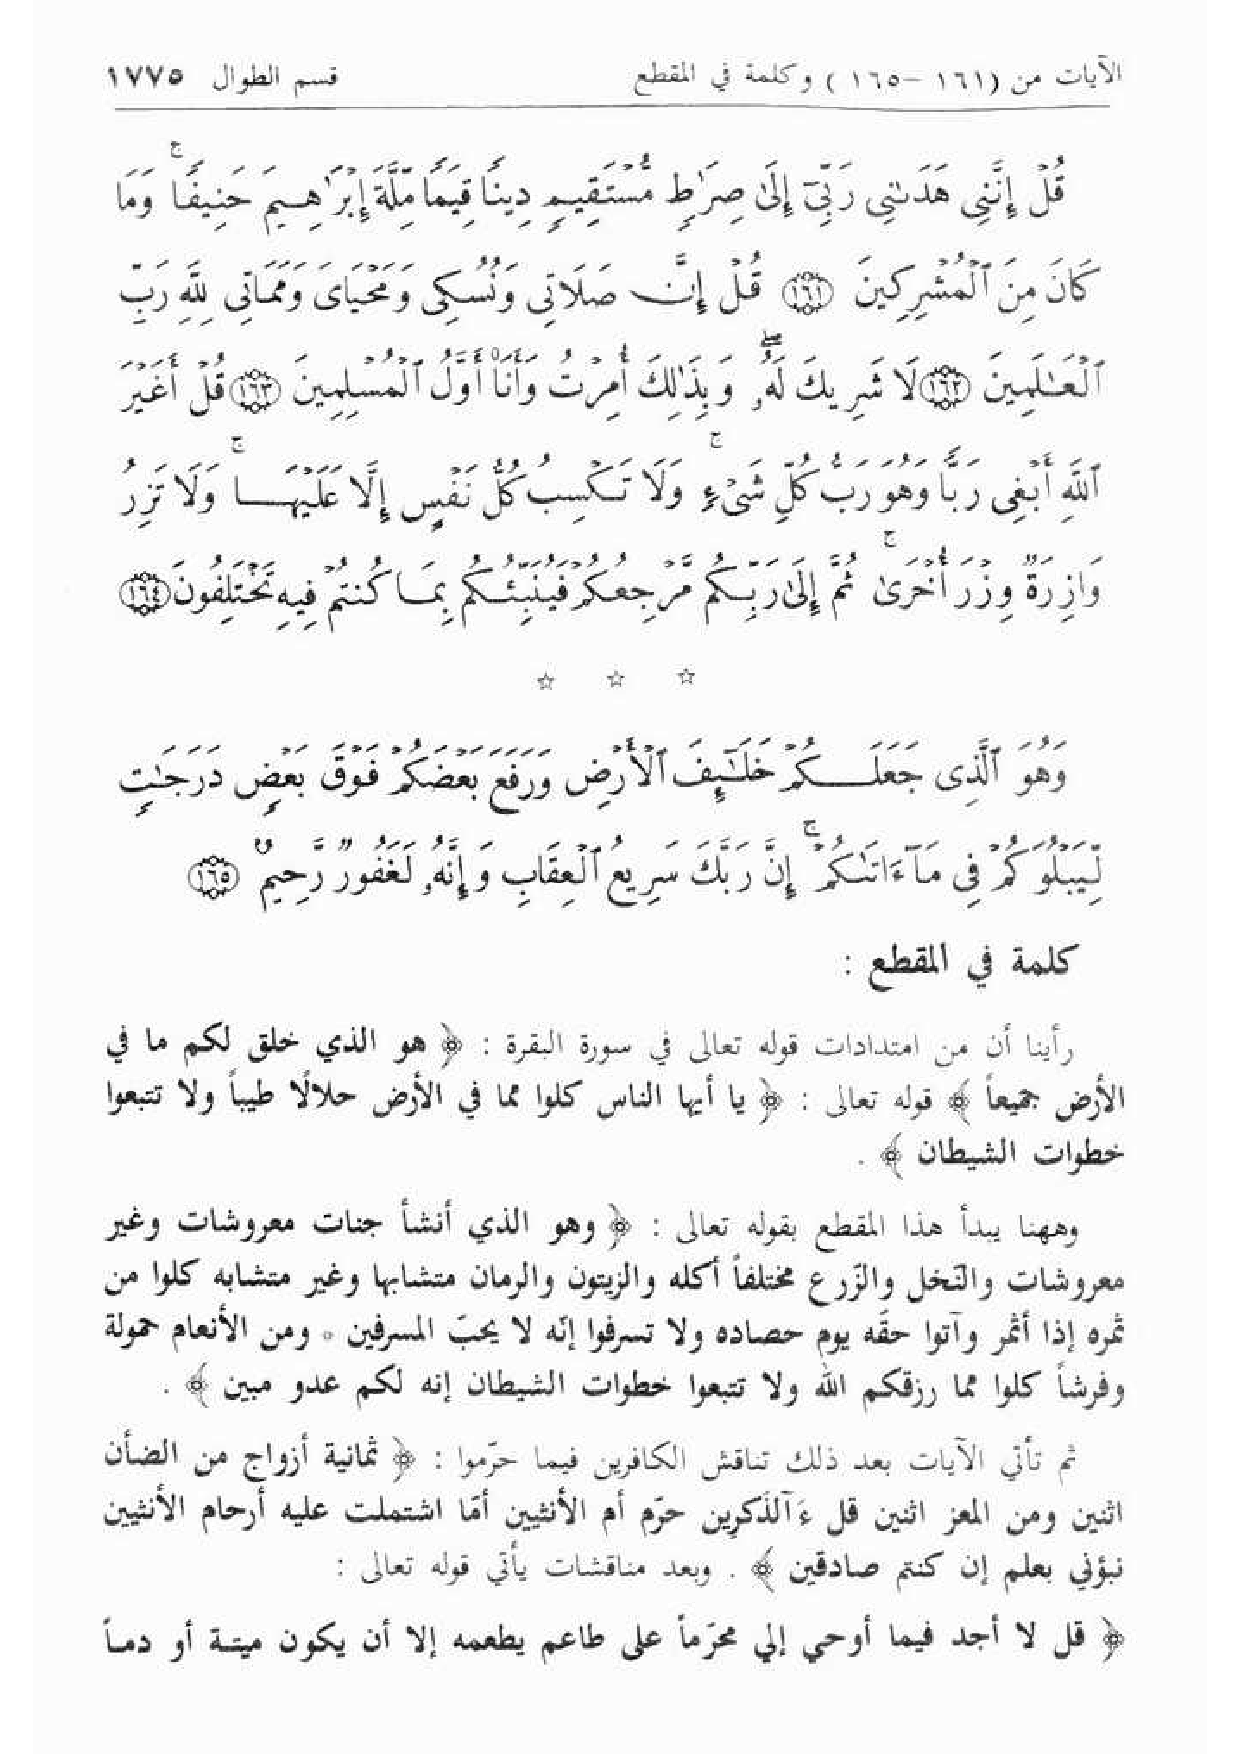 الآيات من (١٦١ – ١٦٥) وكلمة في المقطع قسم الطوال ١٧٧٥
قُلْ إِنَّنِى هَدَىٰنِى رَبِّىٓ إِلَىٰ صِرَٰطٍ مُّسْتَقِيمٍ دِينًا قِيَمًا مِّلَّةَ إِبْرَٰهِيمَ حَنِيفًا ۚ وَمَا
كَانَ مِنَ ٱلْمُشْرِكِينَ ﴿١٦١﴾ قُلْ إِنَّ صَلَاتِى وَنُسُكِى وَمَحْيَاىَ وَمَمَاتِى لِلَّهِ رَبِّ
ٱلْعَٰلَمِينَ ﴿١٦٢﴾ لَا شَرِيكَ لَهُۥ ۖ وَبِذَٰلِكَ أُمِرْتُ وَأَنَا۠ أَوَّلُ ٱلْمُسْلِمِينَ ﴿١٦٣﴾ قُلْ أَغَيْرَ
ٱللَّهِ أَبْغِى رَبًّا وَهُوَ رَبُّ كُلِّ شَىْءٍ ۚ وَلَا تَكْسِبُ كُلُّ نَفْسٍ إِلَّا عَلَيْهَا ۚ وَلَا تَزِرُ
وَازِرَةٌ وِزْرَ أُخْرَىٰ ۚ ثُمَّ إِلَىٰ رَبِّكُم مَّرْجِعُكُمْ فَيُنَبِّئُكُم بِمَا كُنتُمْ فِيهِ تَخْتَلِفُونَ ﴿١٦٤﴾
☆ ☆ ☆
وَهُوَ ٱلَّذِى جَعَلَكُمْ خَلَٰٓئِفَ ٱلْأَرْضِ وَرَفَعَ بَعْضَكُمْ فَوْقَ بَعْضٍ دَرَجَٰتٍ
لِّيَبْلُوَكُمْ فِى مَآ ءَاتَىٰكُمْ ۗ إِنَّ رَبَّكَ سَرِيعُ ٱلْعِقَابِ وَإِنَّهُۥ لَغَفُورٌ رَّحِيمٌۢ ﴿١٦٥﴾
كلمة في المقطع :
رأينا أن من امتدادات قوله تعالى في سورة البقرة : ﴿ هو الذي خلق لكم ما في
الأرض جميعاً ﴾ قوله تعالى : ﴿ يا أيها الناس كلوا مما في الأرض حلالًا طيباً ولا تتبعوا
خطوات الشيطان ﴾ .
وههنا يبدأ هذا المقطع بقوله تعالى : ﴿ وهو الذي أنشأ جنات معروشات وغير
معروشات والنّخل والزّرع مختلفاً أكله والزيتون والرمان متشابها وغير متشابه كلوا من
ثمره إذا أثمر وآتوا حقّه يوم حصاده ولا تسرفوا إنّه لا يحبّ المسرفين ۰ ومن الأنعام حمولة
وفرشاً كلوا مما رزقكم الله ولا تتبعوا خطوات الشيطان إنه لكم عدو مبين ﴾ .
ثم تأتي الآيات بعد ذلك تناقش الكافرين فيما حرّموا : ﴿ ثمانية أزواج من الضأن
اثنين ومن المعز اثنين قل ءَآلذّكرين حرّم أم الأنثيين أمّا اشتملت عليه أرحام الأنثيين
نبؤني بعلم إن كنتم صادقين ﴾ . وبعد مناقشات يأتي قوله تعالى :
﴿ قل لا أجد فيما أوحي إلي محرّماً على طاعم يطعمه إلا أن يكون ميتة أو دماً